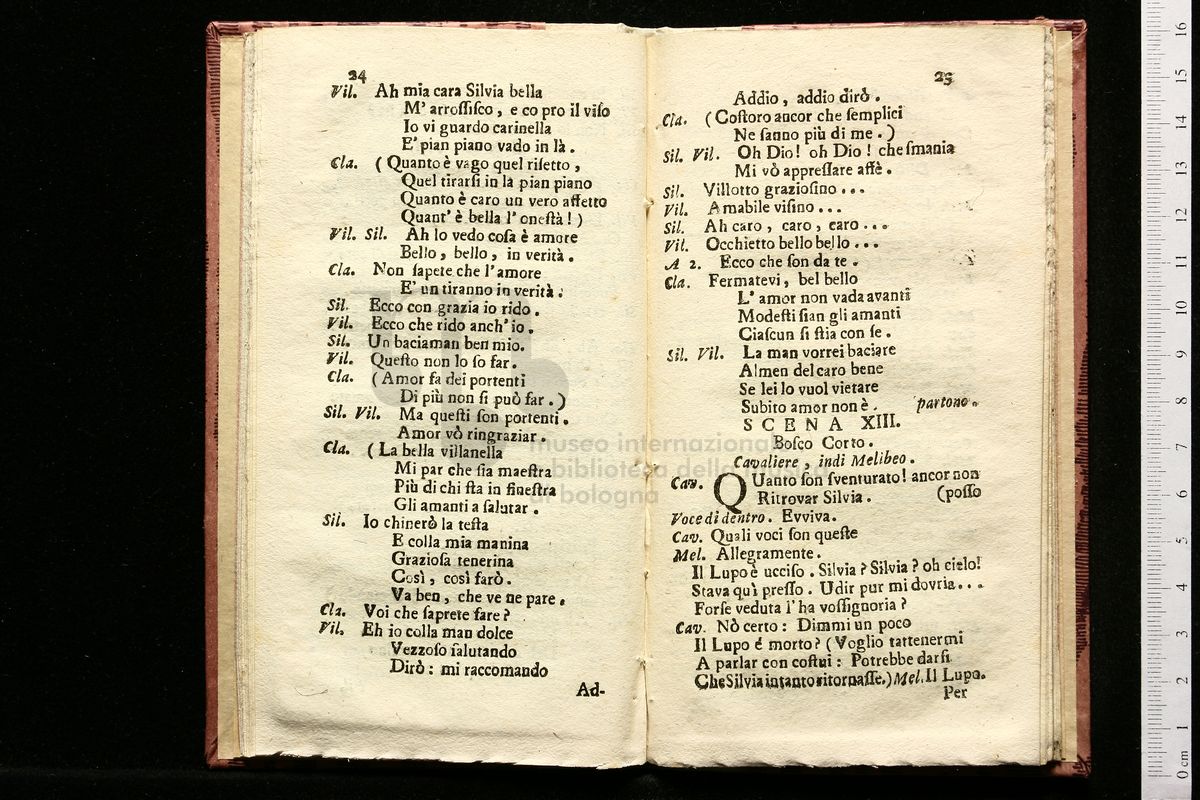 24
Vil. Ah mia cara Silvia bella
M' arroſſiſco, e co pro il viſo
Io vi guardo carinella
E' pian piano vado in là.
Cla. (Quanto è vago quel riſetto,
Quel tirarſi in la pian piano
Quanto è caro un vero affetto
Quant' è bella l' oneſtà!)
Vil. Sil. Ah lo vedo coſa è amore
Bello, bello, in verità.
Cla. Non ſapete che l' amore
E' un tiranno in verità.
Sil. Ecco con grazia io rido.
Vil. Ecco che rido anch' io.
Sil. Un baciaman ben mio.
Vil. Queſto non lo ſo far.
Cla. (Amor fa dei portenti
Di più non ſi può far.)
Sil. Vil. Ma queſti ſon portenti.
Amor vò ringraziar.
Cla. (La bella villanella
Mi par che ſia maeſtra
Più di chi ſta in fineſtra
Gli amanti a ſalutar.
Sil. Io chinerò la teſta
E colla mia manina
Grazioſa tenerina
Così, così farò.
Va ben, che ve ne pare.
Cla. Voi che ſaprete fare?
Vil. Eh io colla man dolce
Vezzoſo ſalutando
Dirò: mi raccomando
Ad-
25
Addio, addio dirò.
Cla. (Coſtoro ancor che ſemplici
Ne ſanno più di me.)
Sil. Vil. Oh Dio! oh Dio! che ſmania
Mi vò appreſſare affè.
Sil. Villotto grazioſino...
Vil. Amabile viſino...
Sil. Ah caro, caro, caro...
Vil. Occhietto bello bello...
A 2. Ecco che ſon da te.
Cla. Fermatevi, bel bello
L' amor non vada avanti
Modeſti ſian gli amanti
Ciaſcun ſi ſtia con ſe.
Sil. Vil. La man vorrei baciare
Almen del caro bene
Se lei lo vuol vietare
Subito amor non è. partono.
SCENA XIII.
Boſco Corto.
Cavaliere, indi Melibeo.
Cav. QUanto ſon ſventurato! ancor non
Ritrovar Silvia. (poſſo
Voce di dentro. Evviva.
Cav. Quali voci ſon queſte
Mel. Allegramente.
Il Lupo è ucciſo. Silvia? Silvia? oh cielo!
Stava quì preſſo. Udir pur mi dovria...
Forſe veduta l' ha voſſignoria?
Cav. Nò certo: Dimmi un poco
Il Lupo é morto? (Voglio tattenermi
A parlar con coſtui: Potrebbe darſi
Che Silvia intanto ritornaſſe.) Mel. Il Lupo.
Per
museo internazionale
e biblioteca della musica
di bologna
0 cm 1 2 3 4 5 6 7 8 9 10 11 12 13 14 15 16